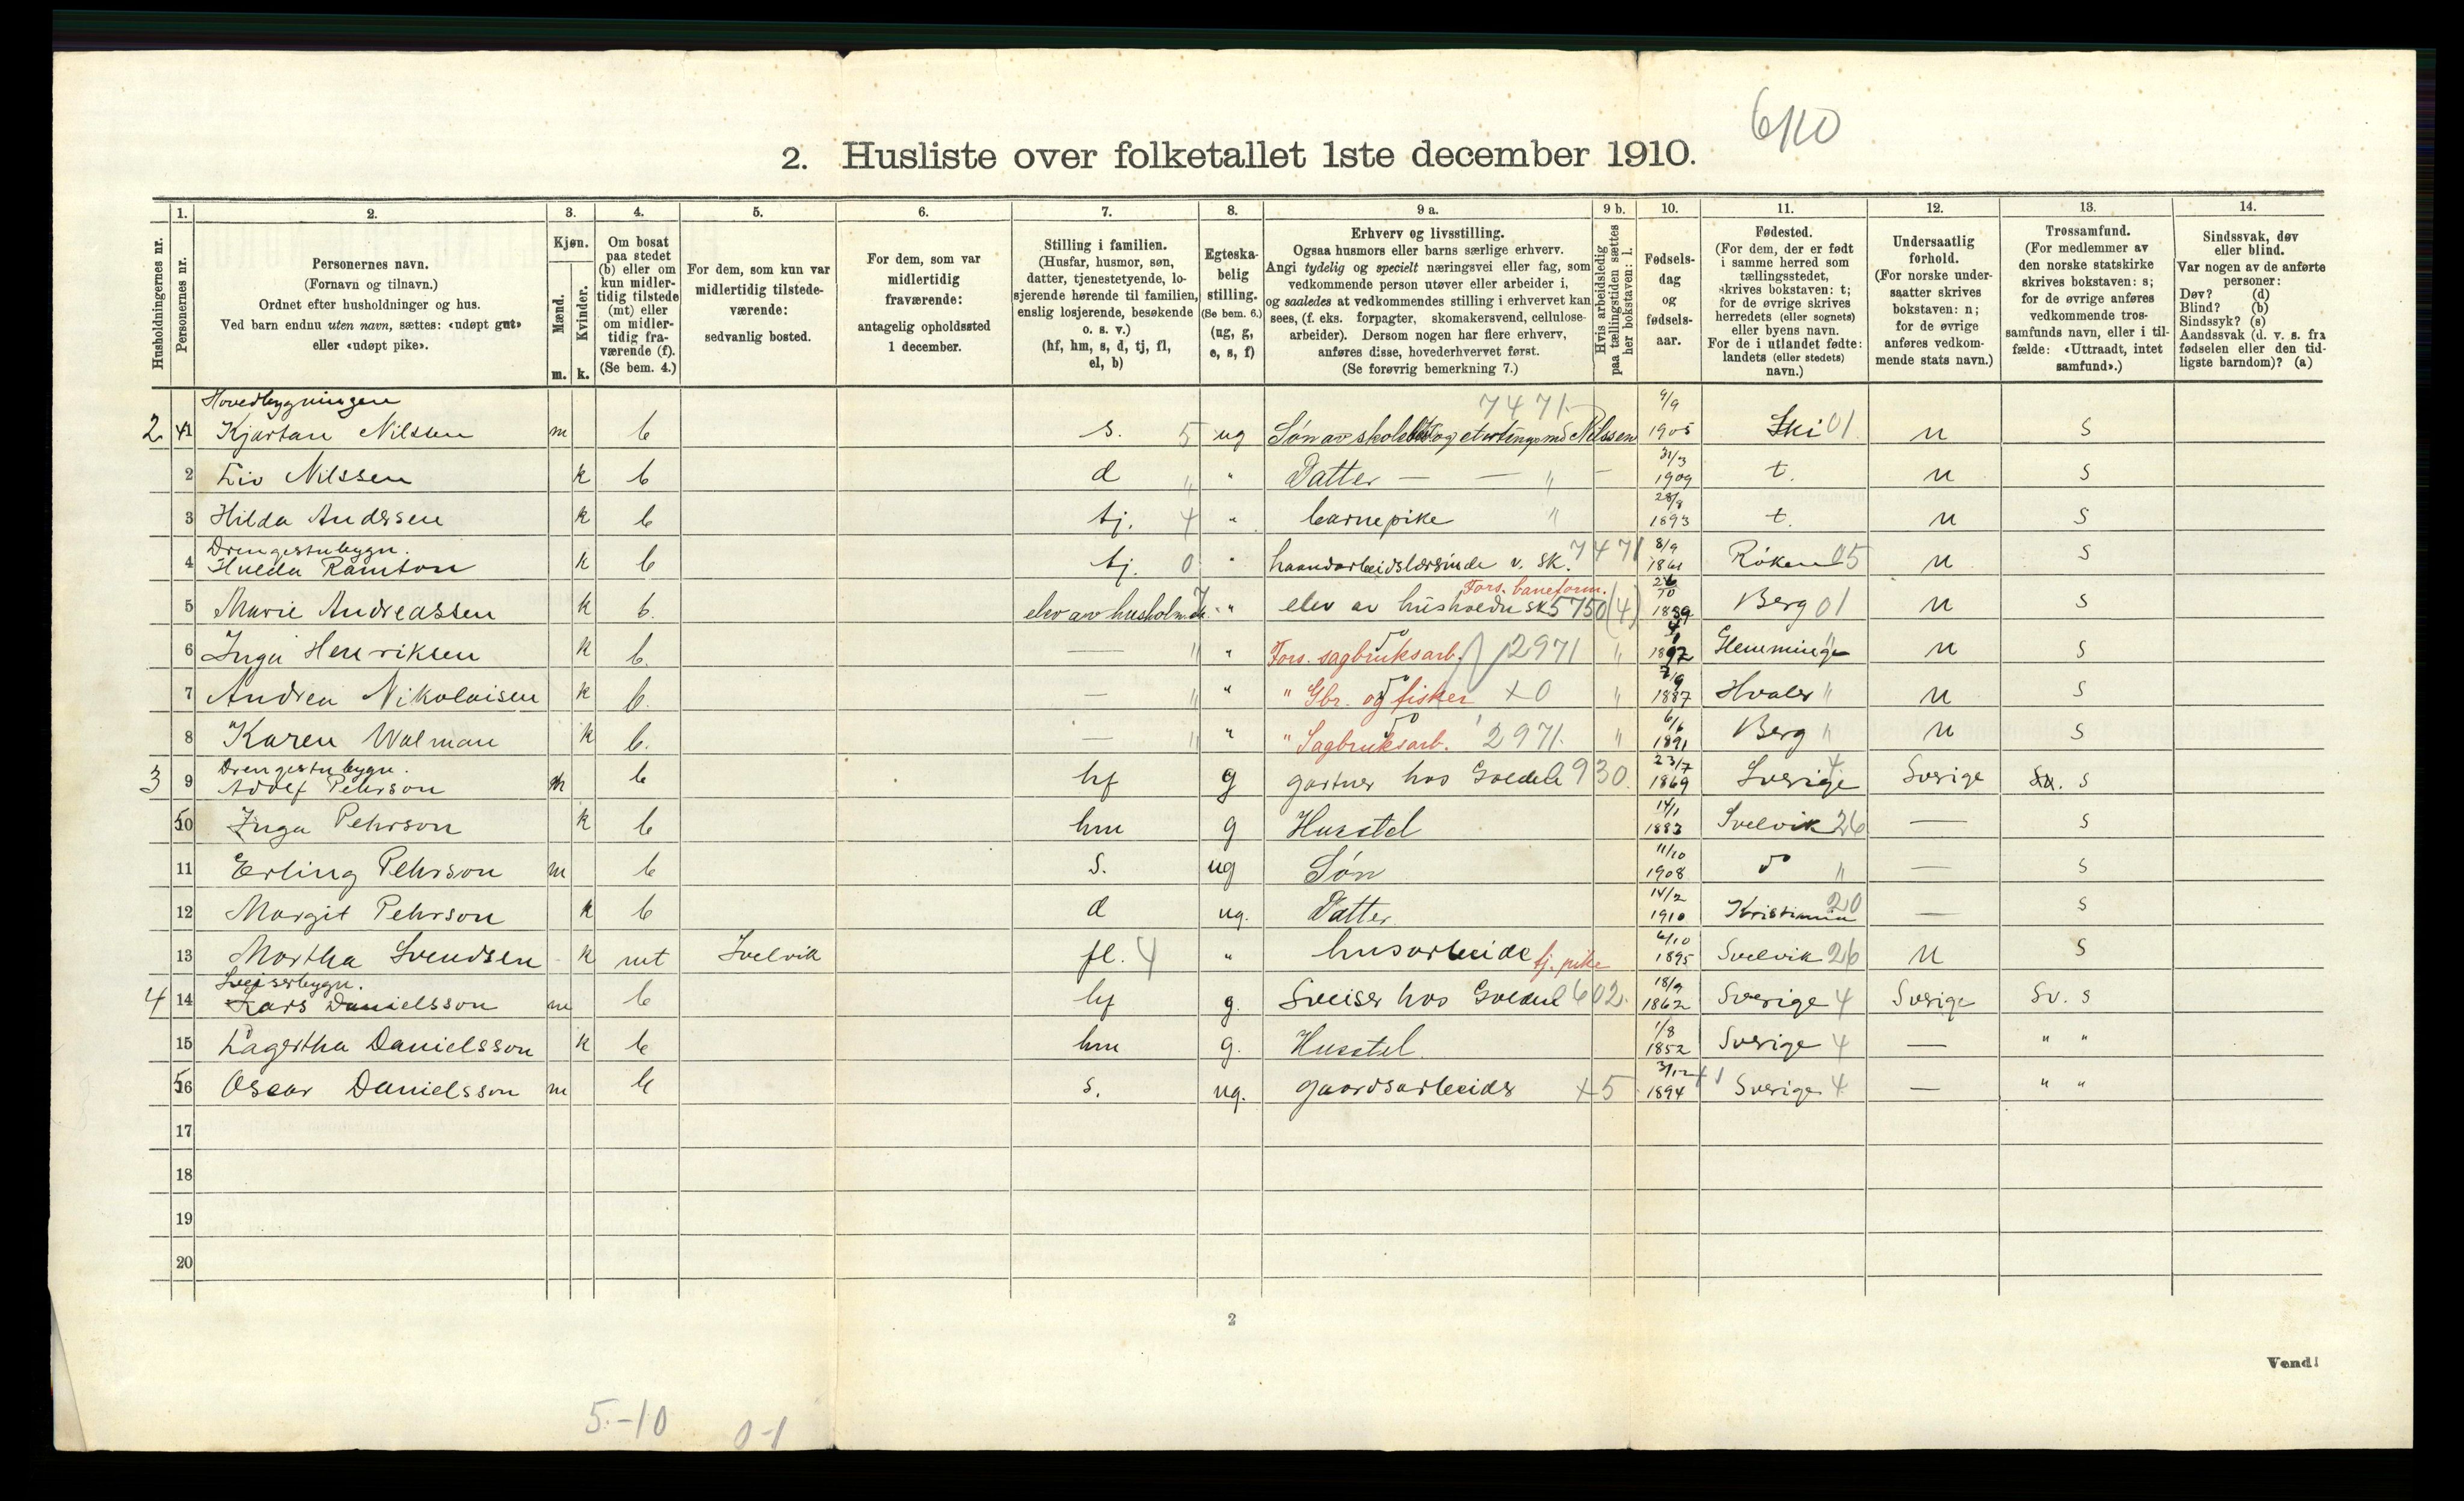 6/10
2. Husliste over folketallet 1ste december 1910.
Husholdningernes nr.
1. Personernes nr.
2. Personernes navn.
(Fornavn og tilnavn.)
Ordnet efter husholdninger og hus.
Ved barn endnu uten navn, sættes: «udøpt gut»
eller «udøpt pike».
3. Kjøn.
Mænd. m.
Kvinder. k.
4. Om bosat
paa stedet
(b) eller om
kun midler-
tidig tilstede
(mt) eller
om midler-
tidig fra-
værende (f).
(Se bem. 4.)
5. For dem, som kun var
midlertidig tilstede-
værende:
sedvanlig bosted.
6. For dem, som var
midlertidig
fraværende:
antagelig opholdssted
1 december.
7. Stilling i familien.
(Husfar, husmor, søn,
datter, tjenestetyende, lo-
sjerende hørende til familien,
enslig losjerende, besøkende
o. s. v.)
(hf, hm, s, d, tj, fl,
el, b)
8. Egteska-
belig
stilling.
(Se bem. 6.)
(ug, g,
e, s, f)
9 a. Erhverv og livsstilling.
Ogsaa husmors eller barns særlige erhverv.
Angi tydelig og specielt næringsvei eller fag, som
vedkommende person utøver eller arbeider i,
og saaledes at vedkommendes stilling i erhvervet kan
sees, (f. eks. forpagter, skomakersvend, cellulose-
arbeider). Dersom nogen har flere erhverv,
anføres disse, hovederhvervet først.
(Se forøvrig bemerkning 7.)
9 b. Hvis arbeidsledig
paa tællingstiden sættes
her bokstaven: l.
10. Fødsels-
dag
og
fødsels-
aar.
11. Fødested.
(For dem, der er født
i samme herred som
tællingsstedet,
skrives bokstaven: t;
for de øvrige skrives
herredets (eller sognets)
eller byens navn.
For de i utlandet fødte:
landets (eller stedets)
navn.)
12. Undersaatlig
forhold.
(For norske under-
saatter skrives
bokstaven: n;
for de øvrige
anføres vedkom-
mende stats navn.)
13. Trossamfund.
(For medlemmer av
den norske statskirke
skrives bokstaven: s;
for de øvrige anføres
vedkommende tros-
samfunds navn, eller i til-
fælde: «Uttraadt, intet
samfund».)
14. Sindssvak, døv
eller blind.
Var nogen av de anførte
personer:
Døv? (d)
Blind? (b)
Sindssyk? (s)
Aandssvak (d. v. s. fra
fødselen eller den tid-
ligste barndom)? (a)
Hovedbygningen 7471
2 1 Kjartan Nilssen m b s. 5 ug Søn av og Nilssen 9/9 1905 Ski 01 n s
2 Liv Nilssen k b d " " Datter — — " — 31/3 1909 t. n s
3 Hilda Andersen k b tj. 4 " barnepike " 28/8 1893 t. n s
Drengestubygn.
4 Hulda Ramton k b tj. 0 " haandarbeidslærerinde v. sk. 7471 8/9 1861 Røken 05 n s
Fors. baneform.
5 Marie Andreassen k b. elev av husholdn.sk. 7 " elev av husholdn sk 5750 (4) 26/10 1889 Berg 01 n s
6 Inga Henriksen k b. — " " do Fors. sagbruksarb. 2971 " 4/1 1892 Glemminge " n s
7 Andrea Nikolaisen k b. — " " do " Gbr. og fisker x0 " 7/9 1887 Hvaler " n s
8 Karen Walman k b. — " " do " Sagbruksarb. 2971 " 6/6 1891 Berg " n s
Drengestubygn.
3 9 Adolf Pehrson m b hf g gartner hos Goedel 930 23/7 1869 Sverige 4 Sverige s
10 Inga Pehrson k b hm g Husstel 14/1 1883 Svelvik 26 — s
11 Erling Pehrson m b s. ug Søn 11/10 1908 do " — s
12 Margit Pehrson k b d ug. Datter 14/2 1910 Kristiania 20 — s
13 Martha Svendsen k mt Svelvik fl. 4 " husarbeide tj. pike 6/10 1895 Svelvik 26 n s
Sveiserbygn.
4 14 Lars Danielsson m b hf g. Sveiser hos Goedel 602 18/9 1862 Sverige 4 Sverige Sv. s
15 Lagertha Danielsson k b hm g. Husstel 1/8 1852 Sverige 4 — " "
16 Oscar Danielsson m b s. ug. gaardsarbeider x5 3/12 1894 Sverige 4 — " "
17
18
19
20
2
Vend!
5-10 0-1